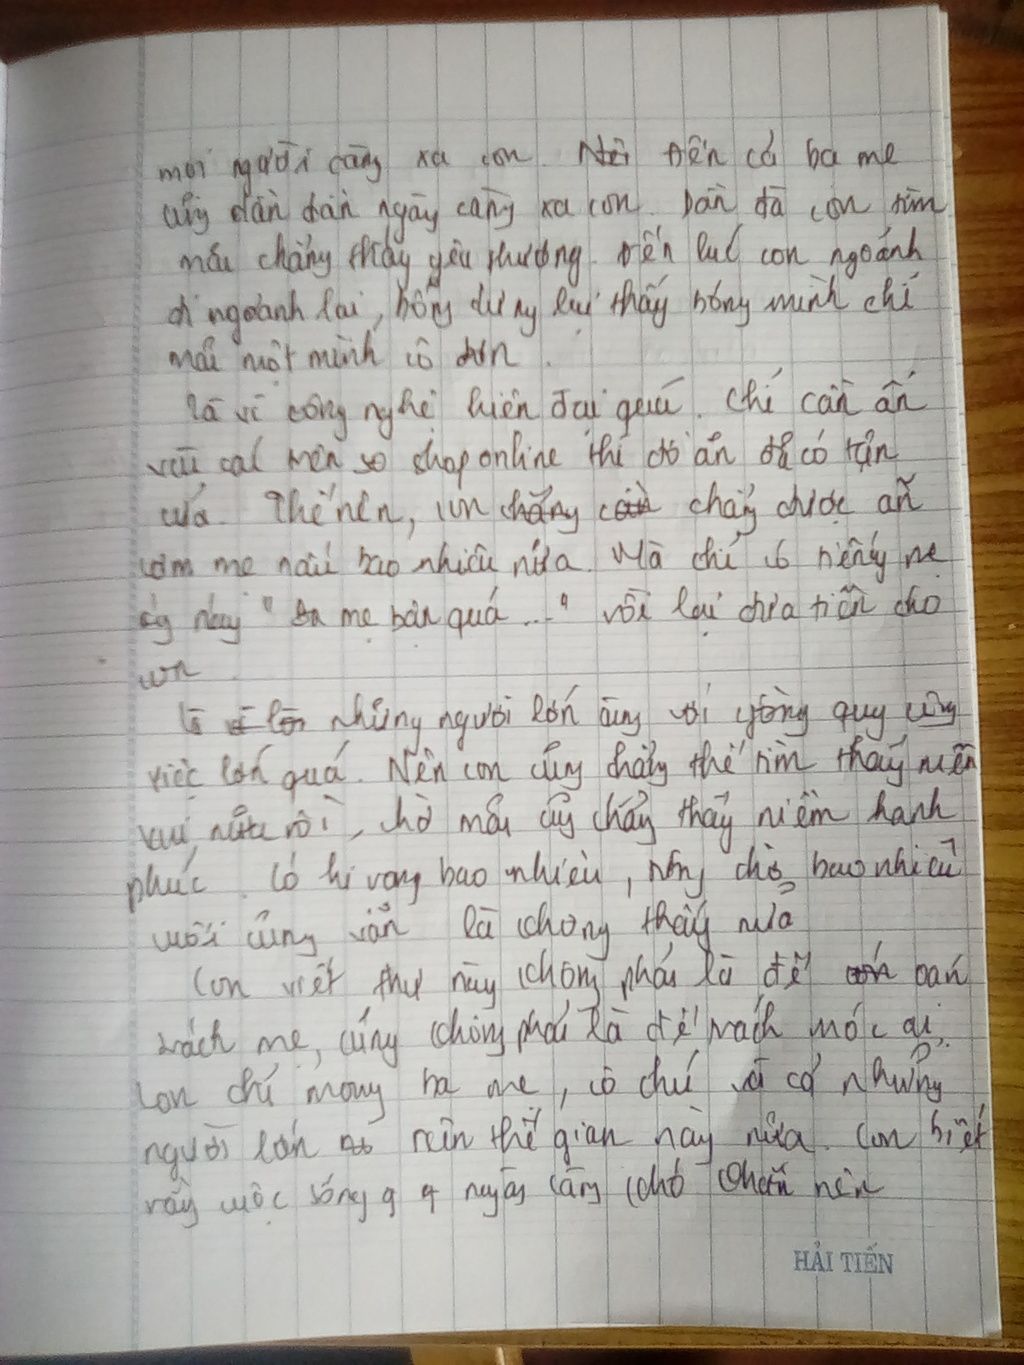 mọi người càng xa con. Nói đến cả ba mẹ
cũng dần dần ngày càng xa con. Dần dà con tìm
mãi chẳng thấy yêu thương. Đến lúc con ngoảnh
đi ngoảnh lại, bỗng dưng lại thấy bóng mình chỉ
mãi một mình cô đơn.
Là vì công nghệ hiện đại quá. Chỉ cần ấn
vài cái trên shop online thì đồ ăn đã có tận
cửa. Thế nên, con chẳng được ăn
cơm mẹ nấu bao nhiêu nữa. Mà chỉ có tiếng mẹ
áy náy "Ba mẹ bận quá..." rồi lại đưa tiền cho
con.
Là những người lớn cũng với vòng quay công
việc lớn quá. Nên con cũng chẳng thể tìm thấy niềm
vui nữa rồi, chờ mãi cũng chẳng thấy niềm hạnh
phúc. Có hi vọng bao nhiêu, mong chờ bao nhiêu
cuối cùng vẫn là không thấy nữa
Con viết thư này không phải là để oán
trách mẹ, cũng không phải là để trách móc ai.
Con chỉ mong ba mẹ, cô chú và cả những
người lớn trên thế gian này nữa. Con biết
rằng cuộc sống ngày càng khó khăn nên
HẢI TIẾN